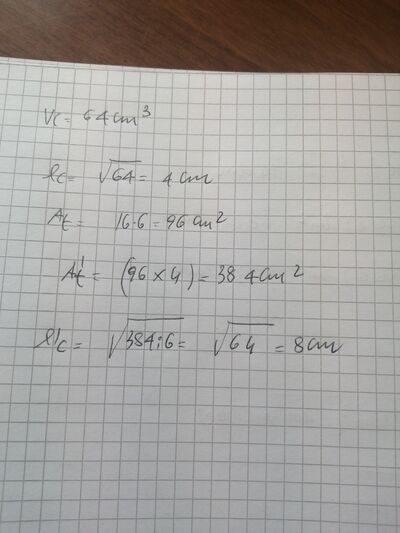 Vc= 64cm³
lc= √64= 4cm
At= 16·6=96cm²
At'= (96×4)=384cm²
l'c= √384:6= √64 =8cm